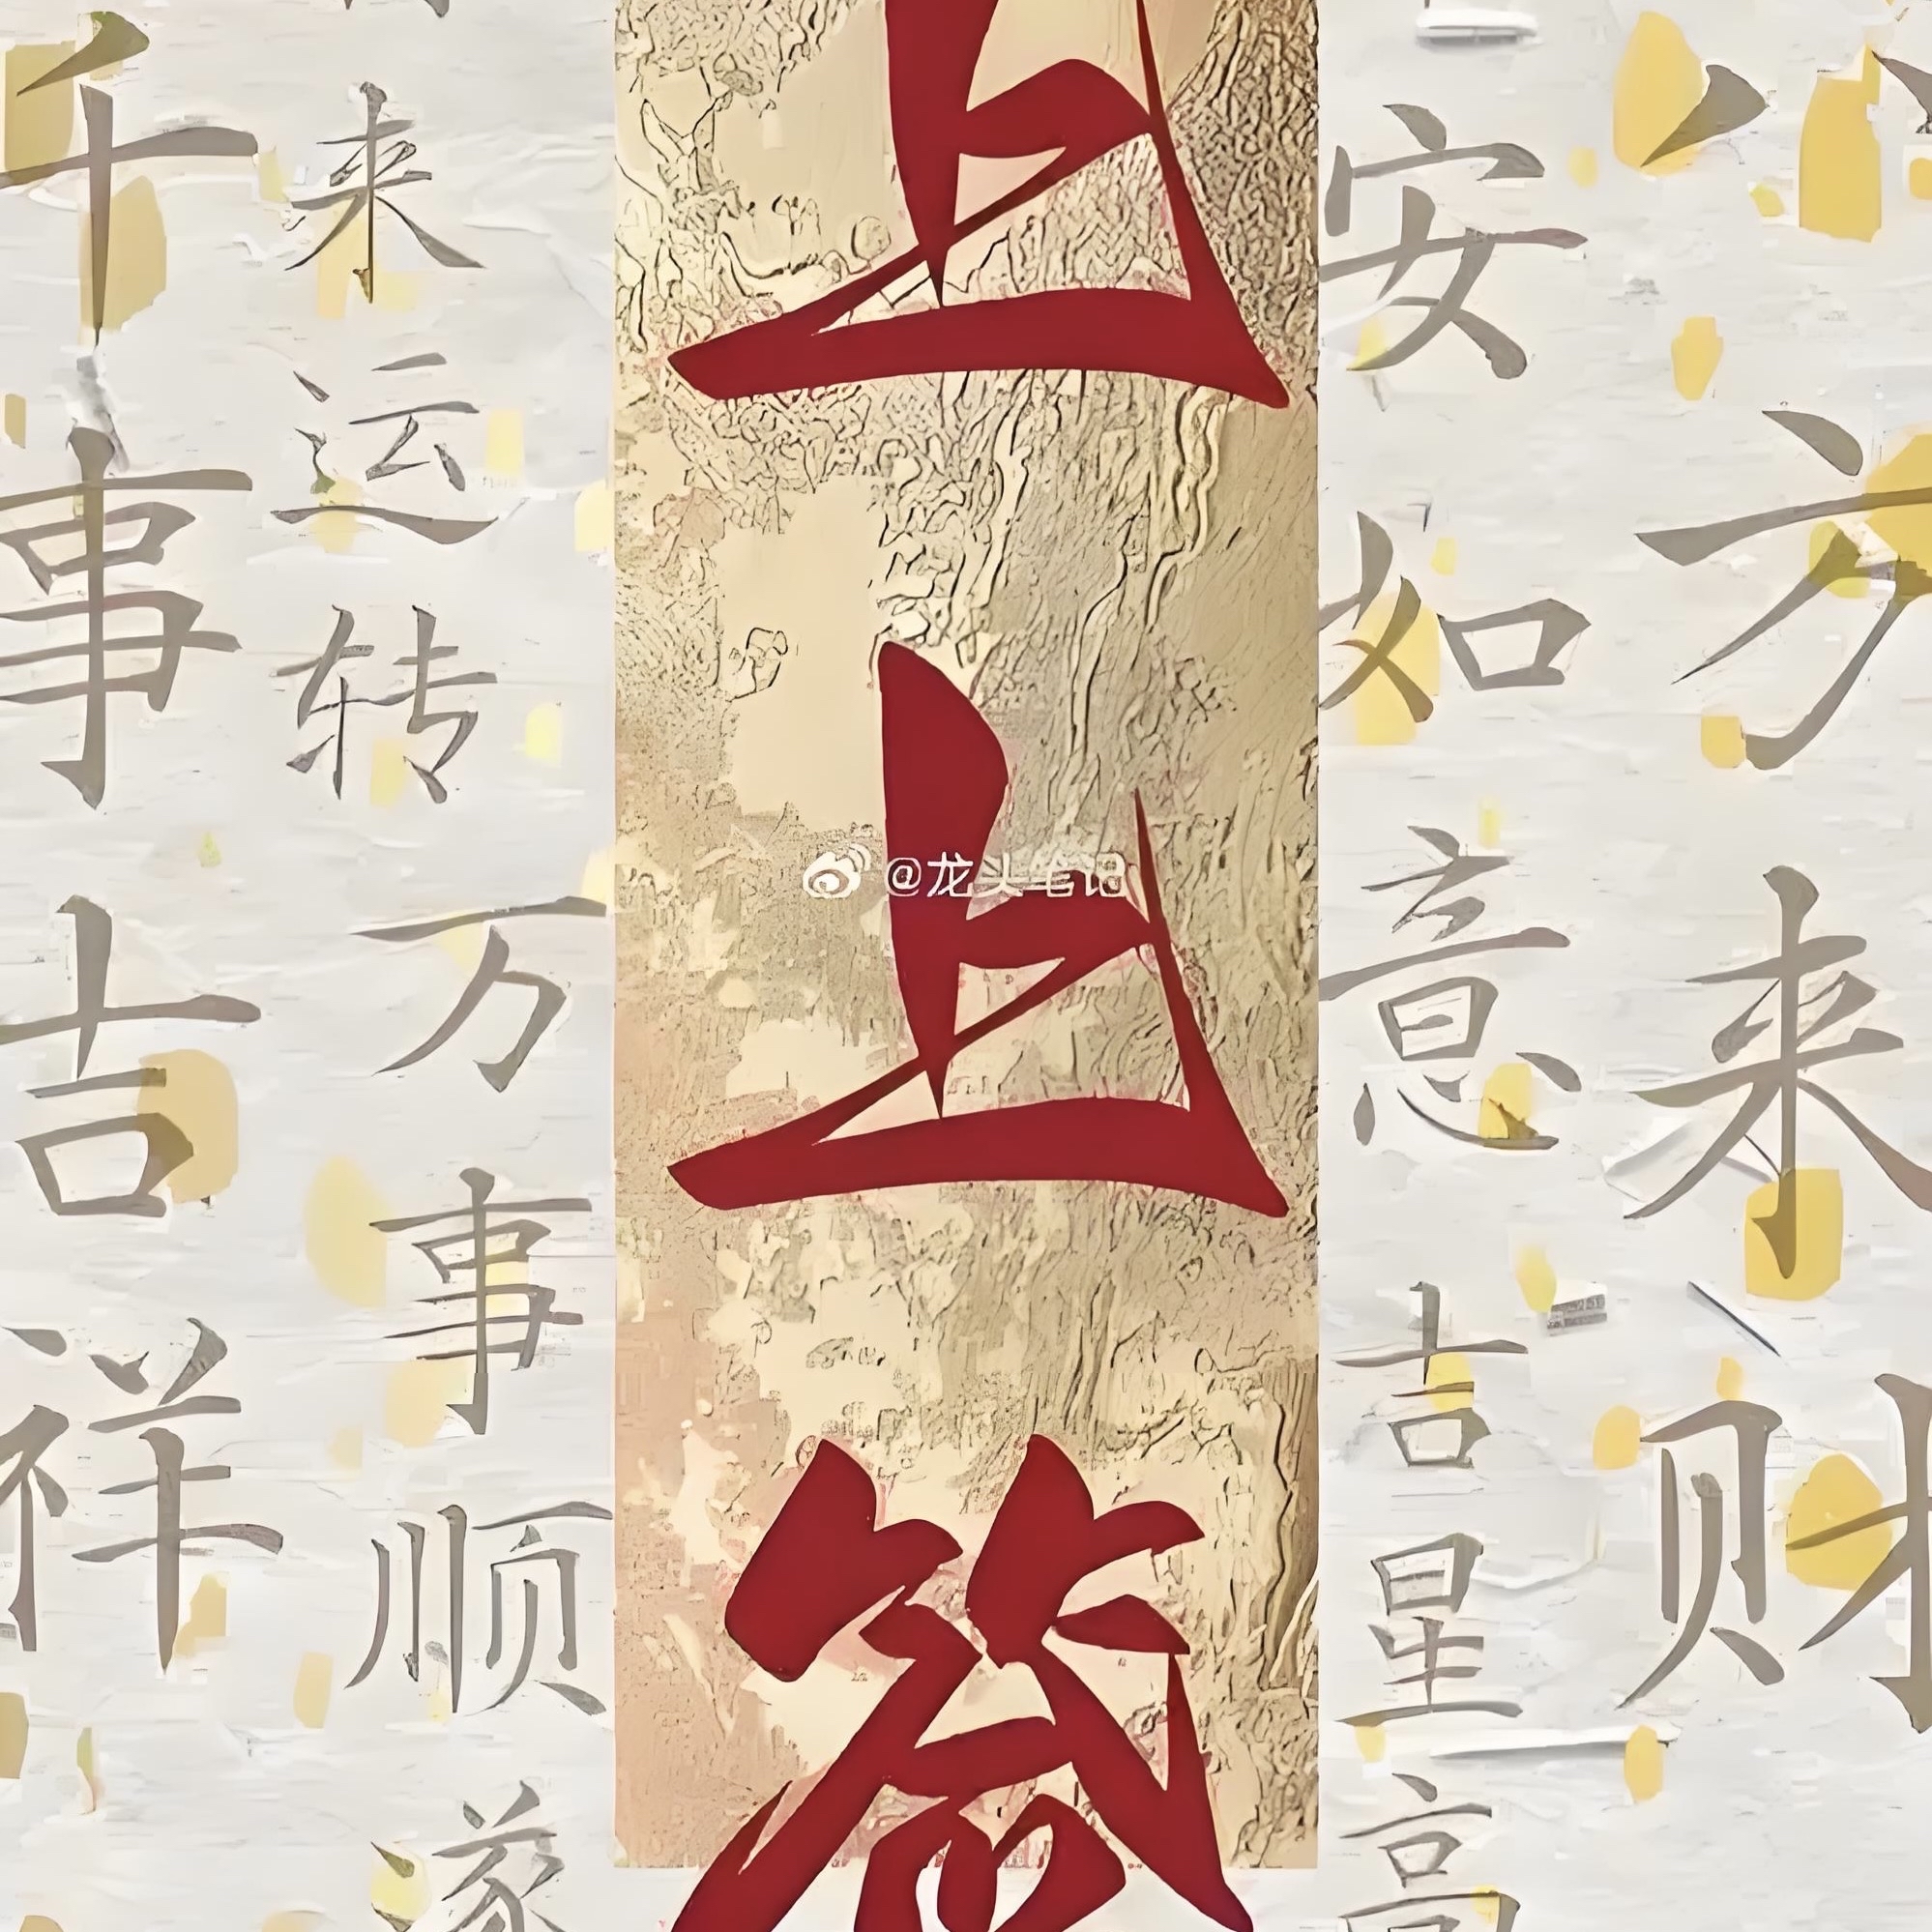 八方来财
安如意吉星高
上上签
@龙头笔记
来运转万事顺遂
千事吉祥